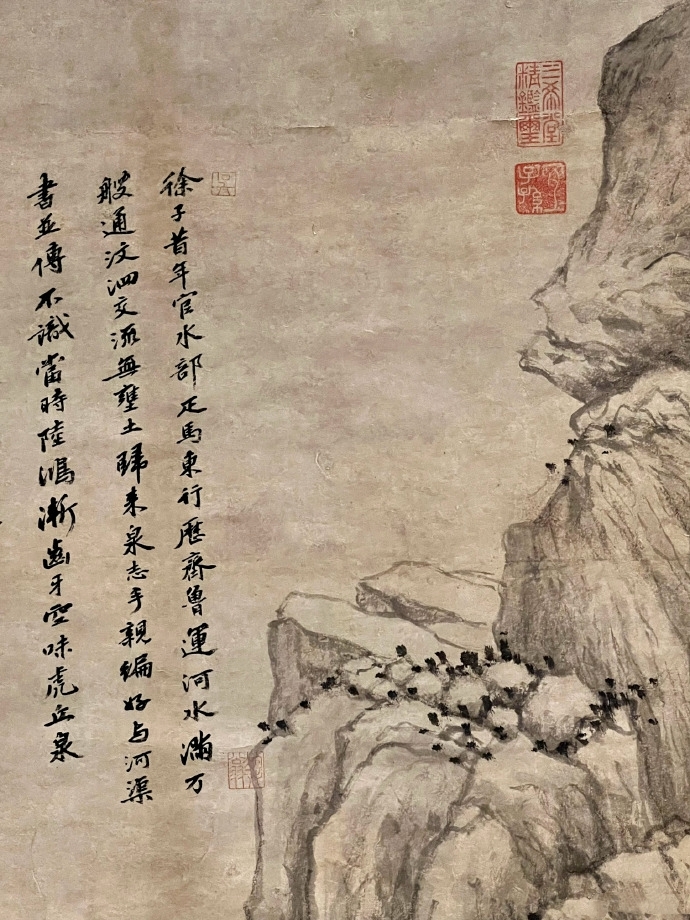 徐子昔年官水部疋馬東行歷齊魯運河水滿万
艘通汶泗交流無壅土歸来泉志手親編好与河渠
書並傳不識當時陸鴻漸齒牙空味虎丘泉
三希堂
精鑑璽
宜子孫